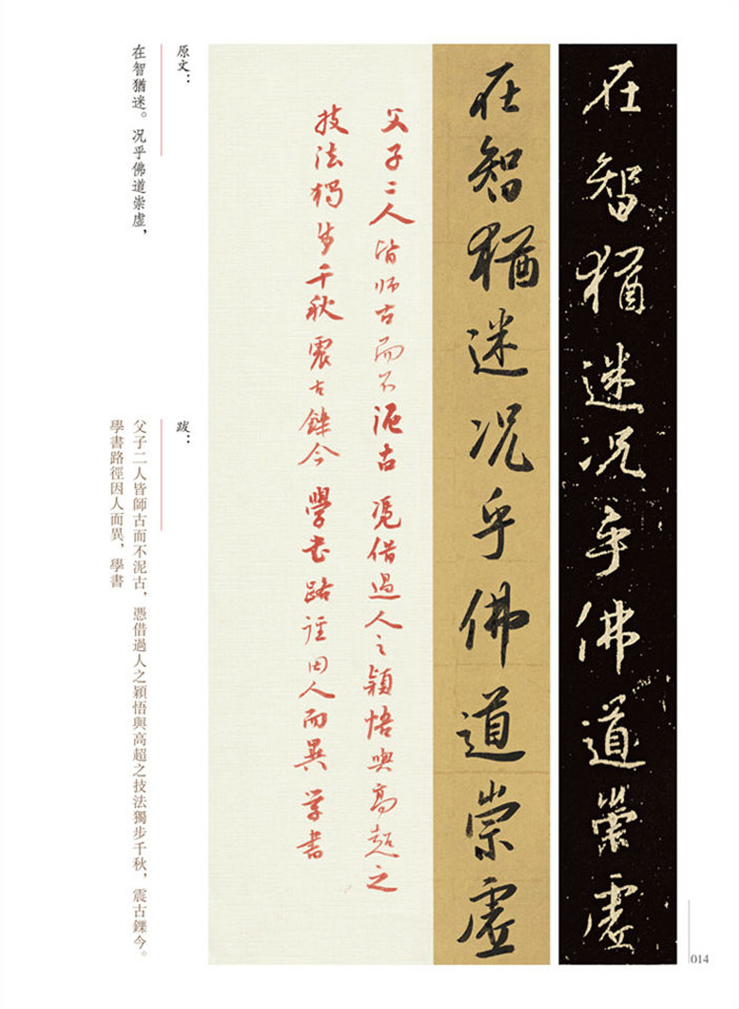 在智猶迷况乎佛道崇虛
在智猶迷况乎佛道崇虛
父子二人皆師古而不泥古憑借過人之穎悟與高超之
技法獨步千秋震古鑠今學書路徑因人而異學書
原文：
在智猶迷。况乎佛道崇虛，
跋：
父子二人皆師古而不泥古，憑借過人之穎悟與高超之技法獨步千秋，震古鑠今。
學書路徑因人而異，學書
014